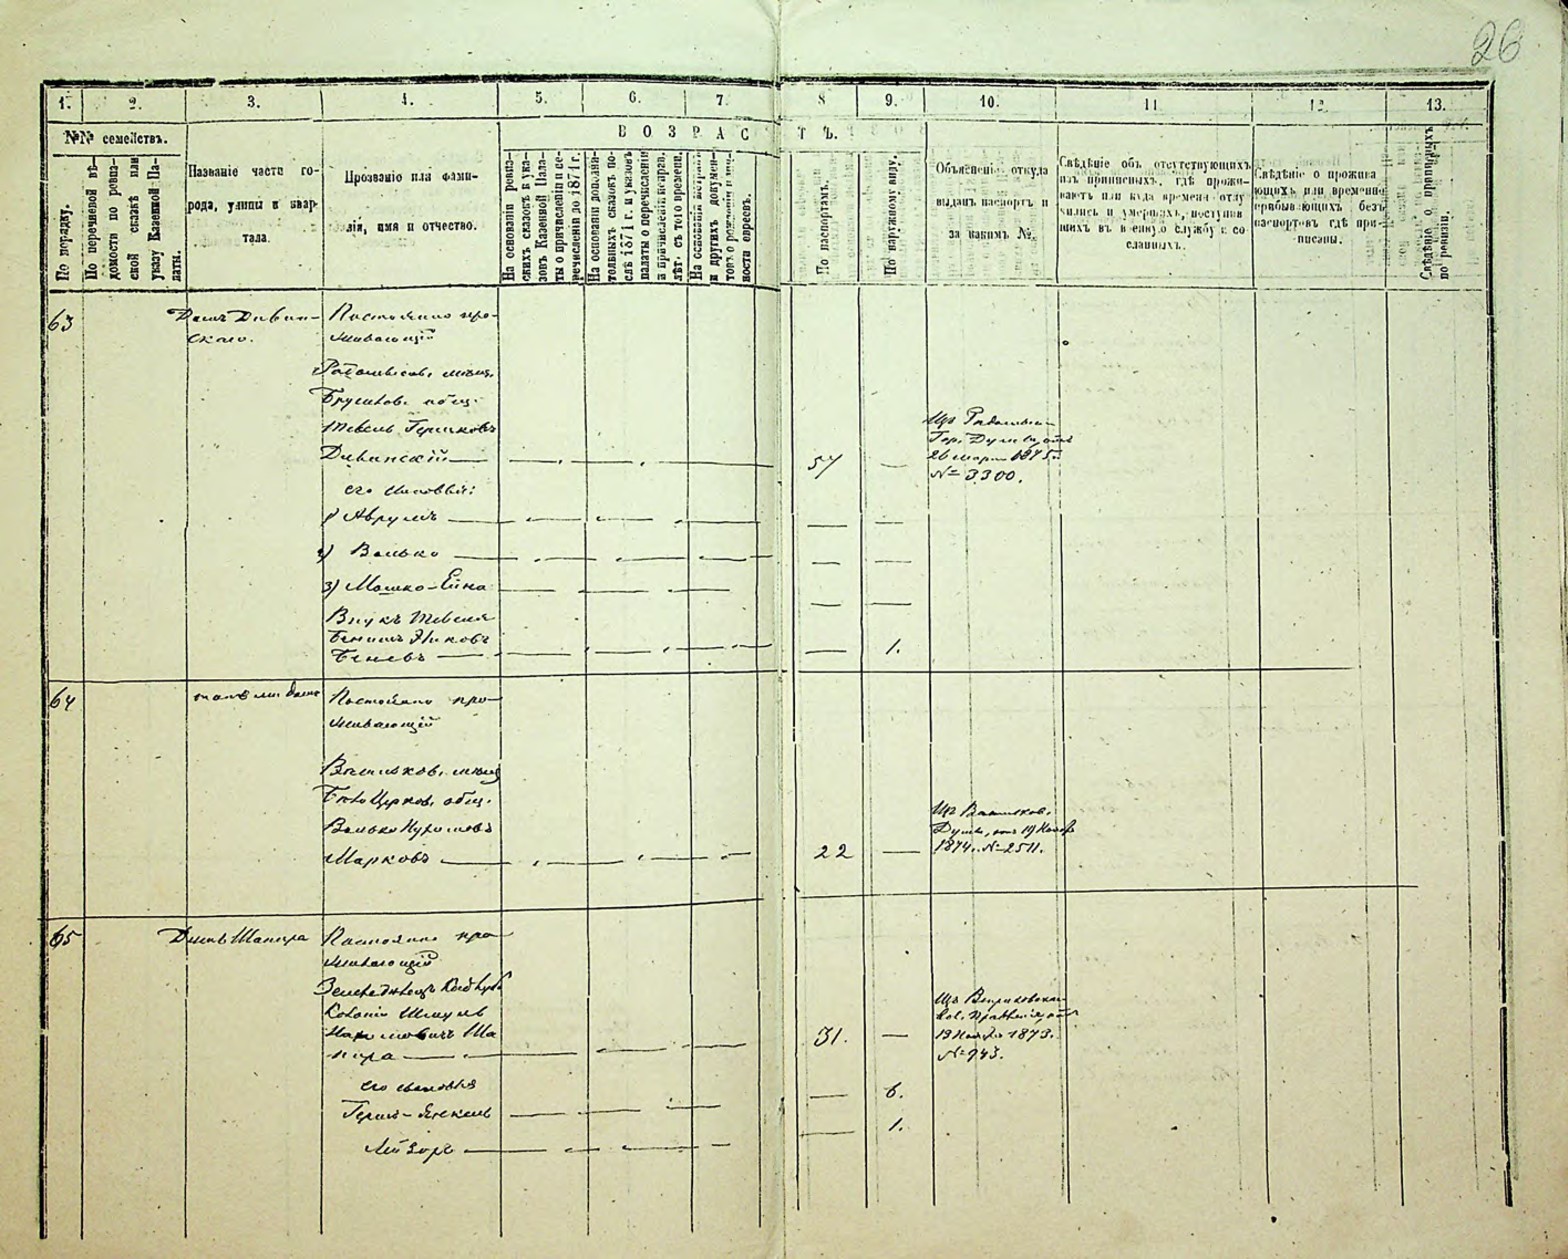 26
1. 2. 3. 4. 5. 6. 7. 8 9. 10. 11 12. 13.
№№ семействъ.
ВОЗРАСТЪ.
По порядку.
По перечневой вѣ-
домости по ревиз-
ской сказкѣ или
указу Казенной Па-
латы.
Названіе части го-
рода, улицы и квар-
тала.
Прозваніе или фами-
лія, имя и отчество.
На основаніи ревиз-
скихъ сказокъ и ука-
зовъ Казенной Пала-
ты о причисленіи и пе-
речисленіи до 1871 г.
На основаніи дополни-
тельныхъ сказокъ по-
слѣ 1871 г. и указовъ
палаты о перечисленіи
и причисленіи неправ.
лѣт. съ того времени.
На основаніи метрикъ
и другихъ докумен-
товъ о рожденіи
ности евреевъ.
По паспортамъ.
По наружному виду.
Объясненіе откуда
выданъ паспортъ и
за какимъ №.
Свѣдѣніе объ отсутствующихъ
изъ приписныхъ, гдѣ прожи-
ваютъ или куда времена отлу
чились и умершихъ, поступив
шихъ въ военную службу и со
сланныхъ.
Свѣдѣніе о прожива
ющихъ или временно
прибывающихъ безъ
паспортовъ гдѣ при-
писаны.
Свѣдѣніе о приписныхъ
по ревизіи.
63
Домъ Дивин-
скаго.
Постоянно про-
живающій
Радомысл. мѣщ.
Брусилов. общ.
Тевель Гершковъ
Дивинскій
57
Изъ Радомысл
Гор. Думы отъ
26 марта 1875.
№ 3300.
его сыновья:
1) Аврумъ
2) Волько
3) Мошко-Ейна
Внукъ Тевеля
1.
64
тамъ же домъ
Постоянно про-
живающій
Васильков. мѣщ
Бѣлоцерков. общ.
Волько
Марковъ
22
Изъ Васильков.
Думы, отъ 19 Нояб
1874. № 2511.
65
Домъ Шапира
Постоянно про-
живающій
Колоніи Шмуль
Ша
пира
31.
Кол. Правленія отъ
19 1873.
№ 943.
его сыновья
Герш-Янкель
6.
Лейзоръ
1.